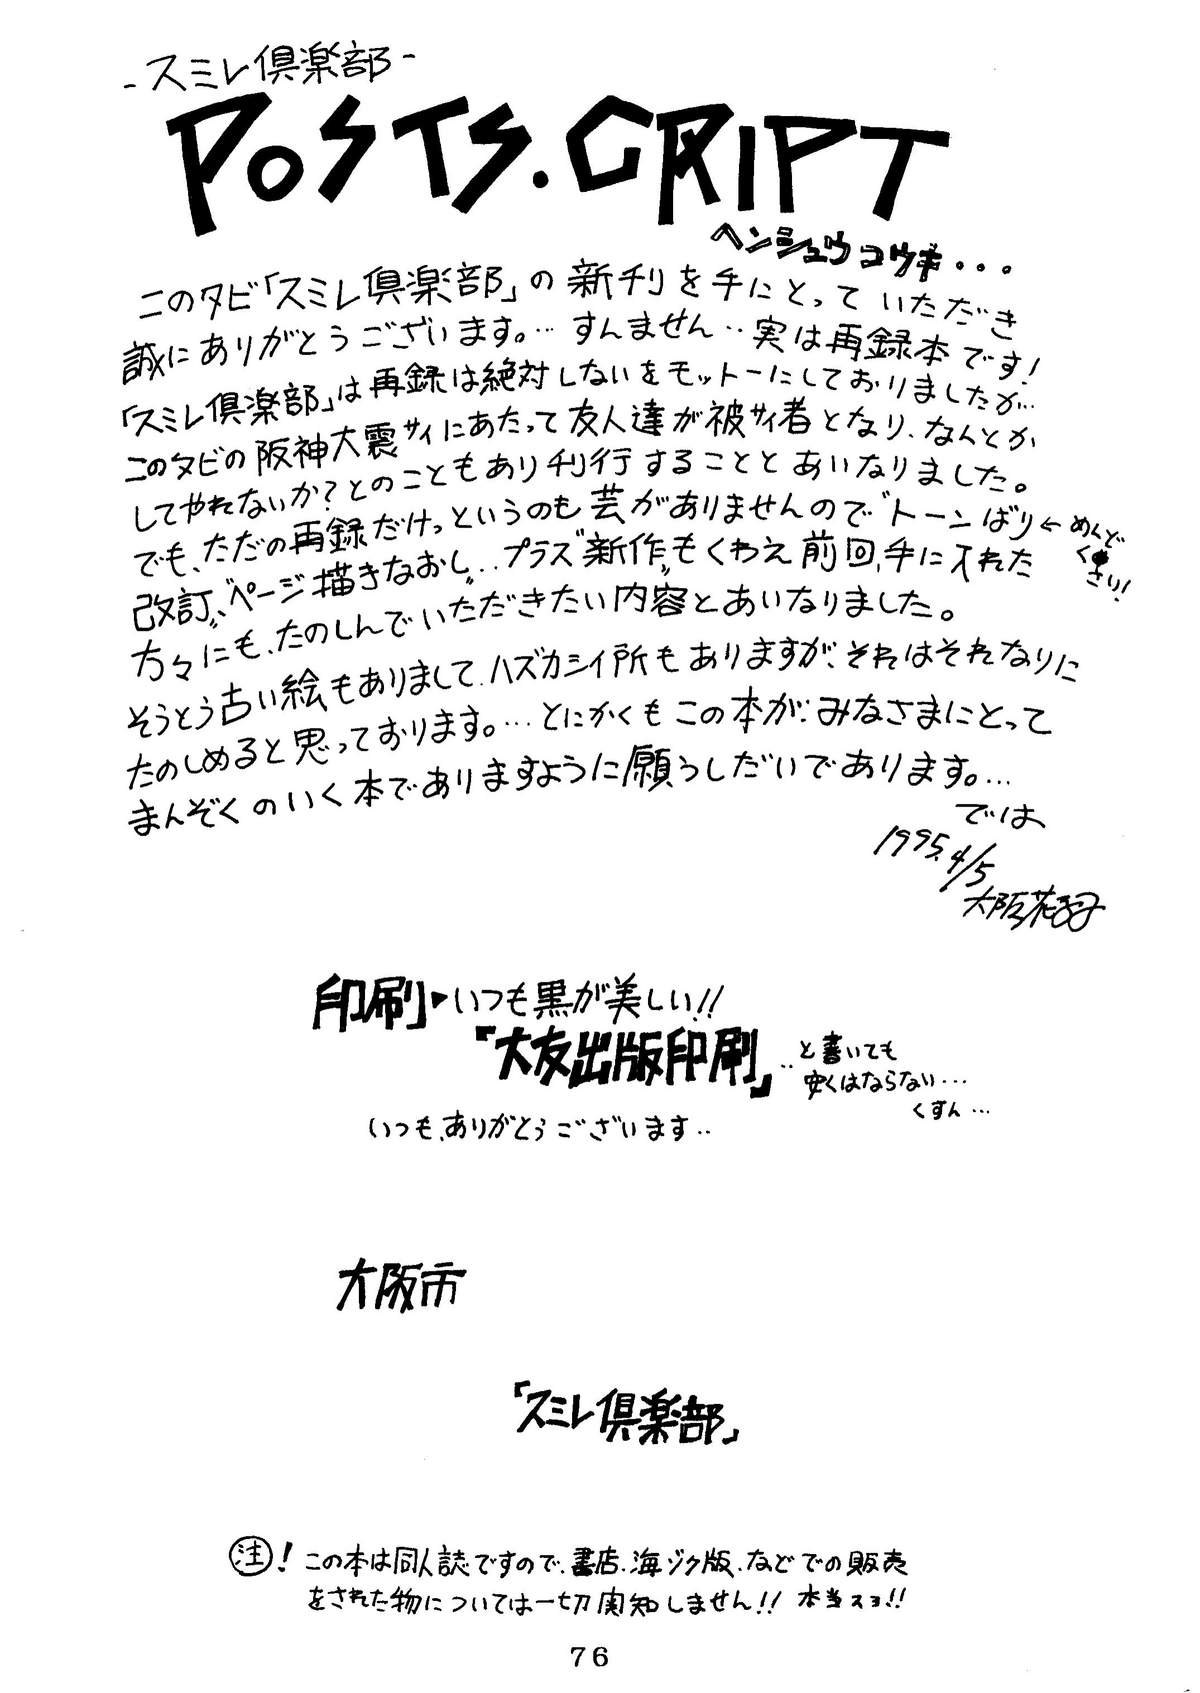 -スミレ倶楽部-
POSTS.CRIPT
ヘンシュウコウキ...
このタビ「スミレ倶楽部」の新刊を手にとっていただき
誠にありがとうございます。…すんません‥実は再録本です!
「スミレ倶楽部」は再録は絶対しないをモットーにしておりましたが…
このタビの阪神大震サイにあたって友人達が被サイ者となり、なんとか
してやれないか?とのこともあり刊行することとあいなりました。
でも、ただの再録だけっというのも芸がありませんので〝トーンばり←めんど
くさい!
改訂〟、〝ページ描きなおし〟‥プラス〝新作〟もくわえ前回、手に入れた
方々にも、たのしんでいただきたい内容とあいなりました。
そうとう古い絵もありまして、ハズカシイ所もありますが、それはそれなりに
たのしめると思っております。…とにかくもこの本が、みなさまにとって
まんぞくのいく本でありますように願うしだいであります。…
では、
1995.4/5
大阪花子
印刷▶いつも黒が美しい!!
『大友出版印刷』‥と書いても
安くはならない…
くすん…
いつも、ありがとうございます‥
大阪市
「スミレ倶楽部」
注!この本は同人誌ですので、書店、海ゾク版、などでの販売
をされた物については一切関知しません!!本当スヨ!!
76